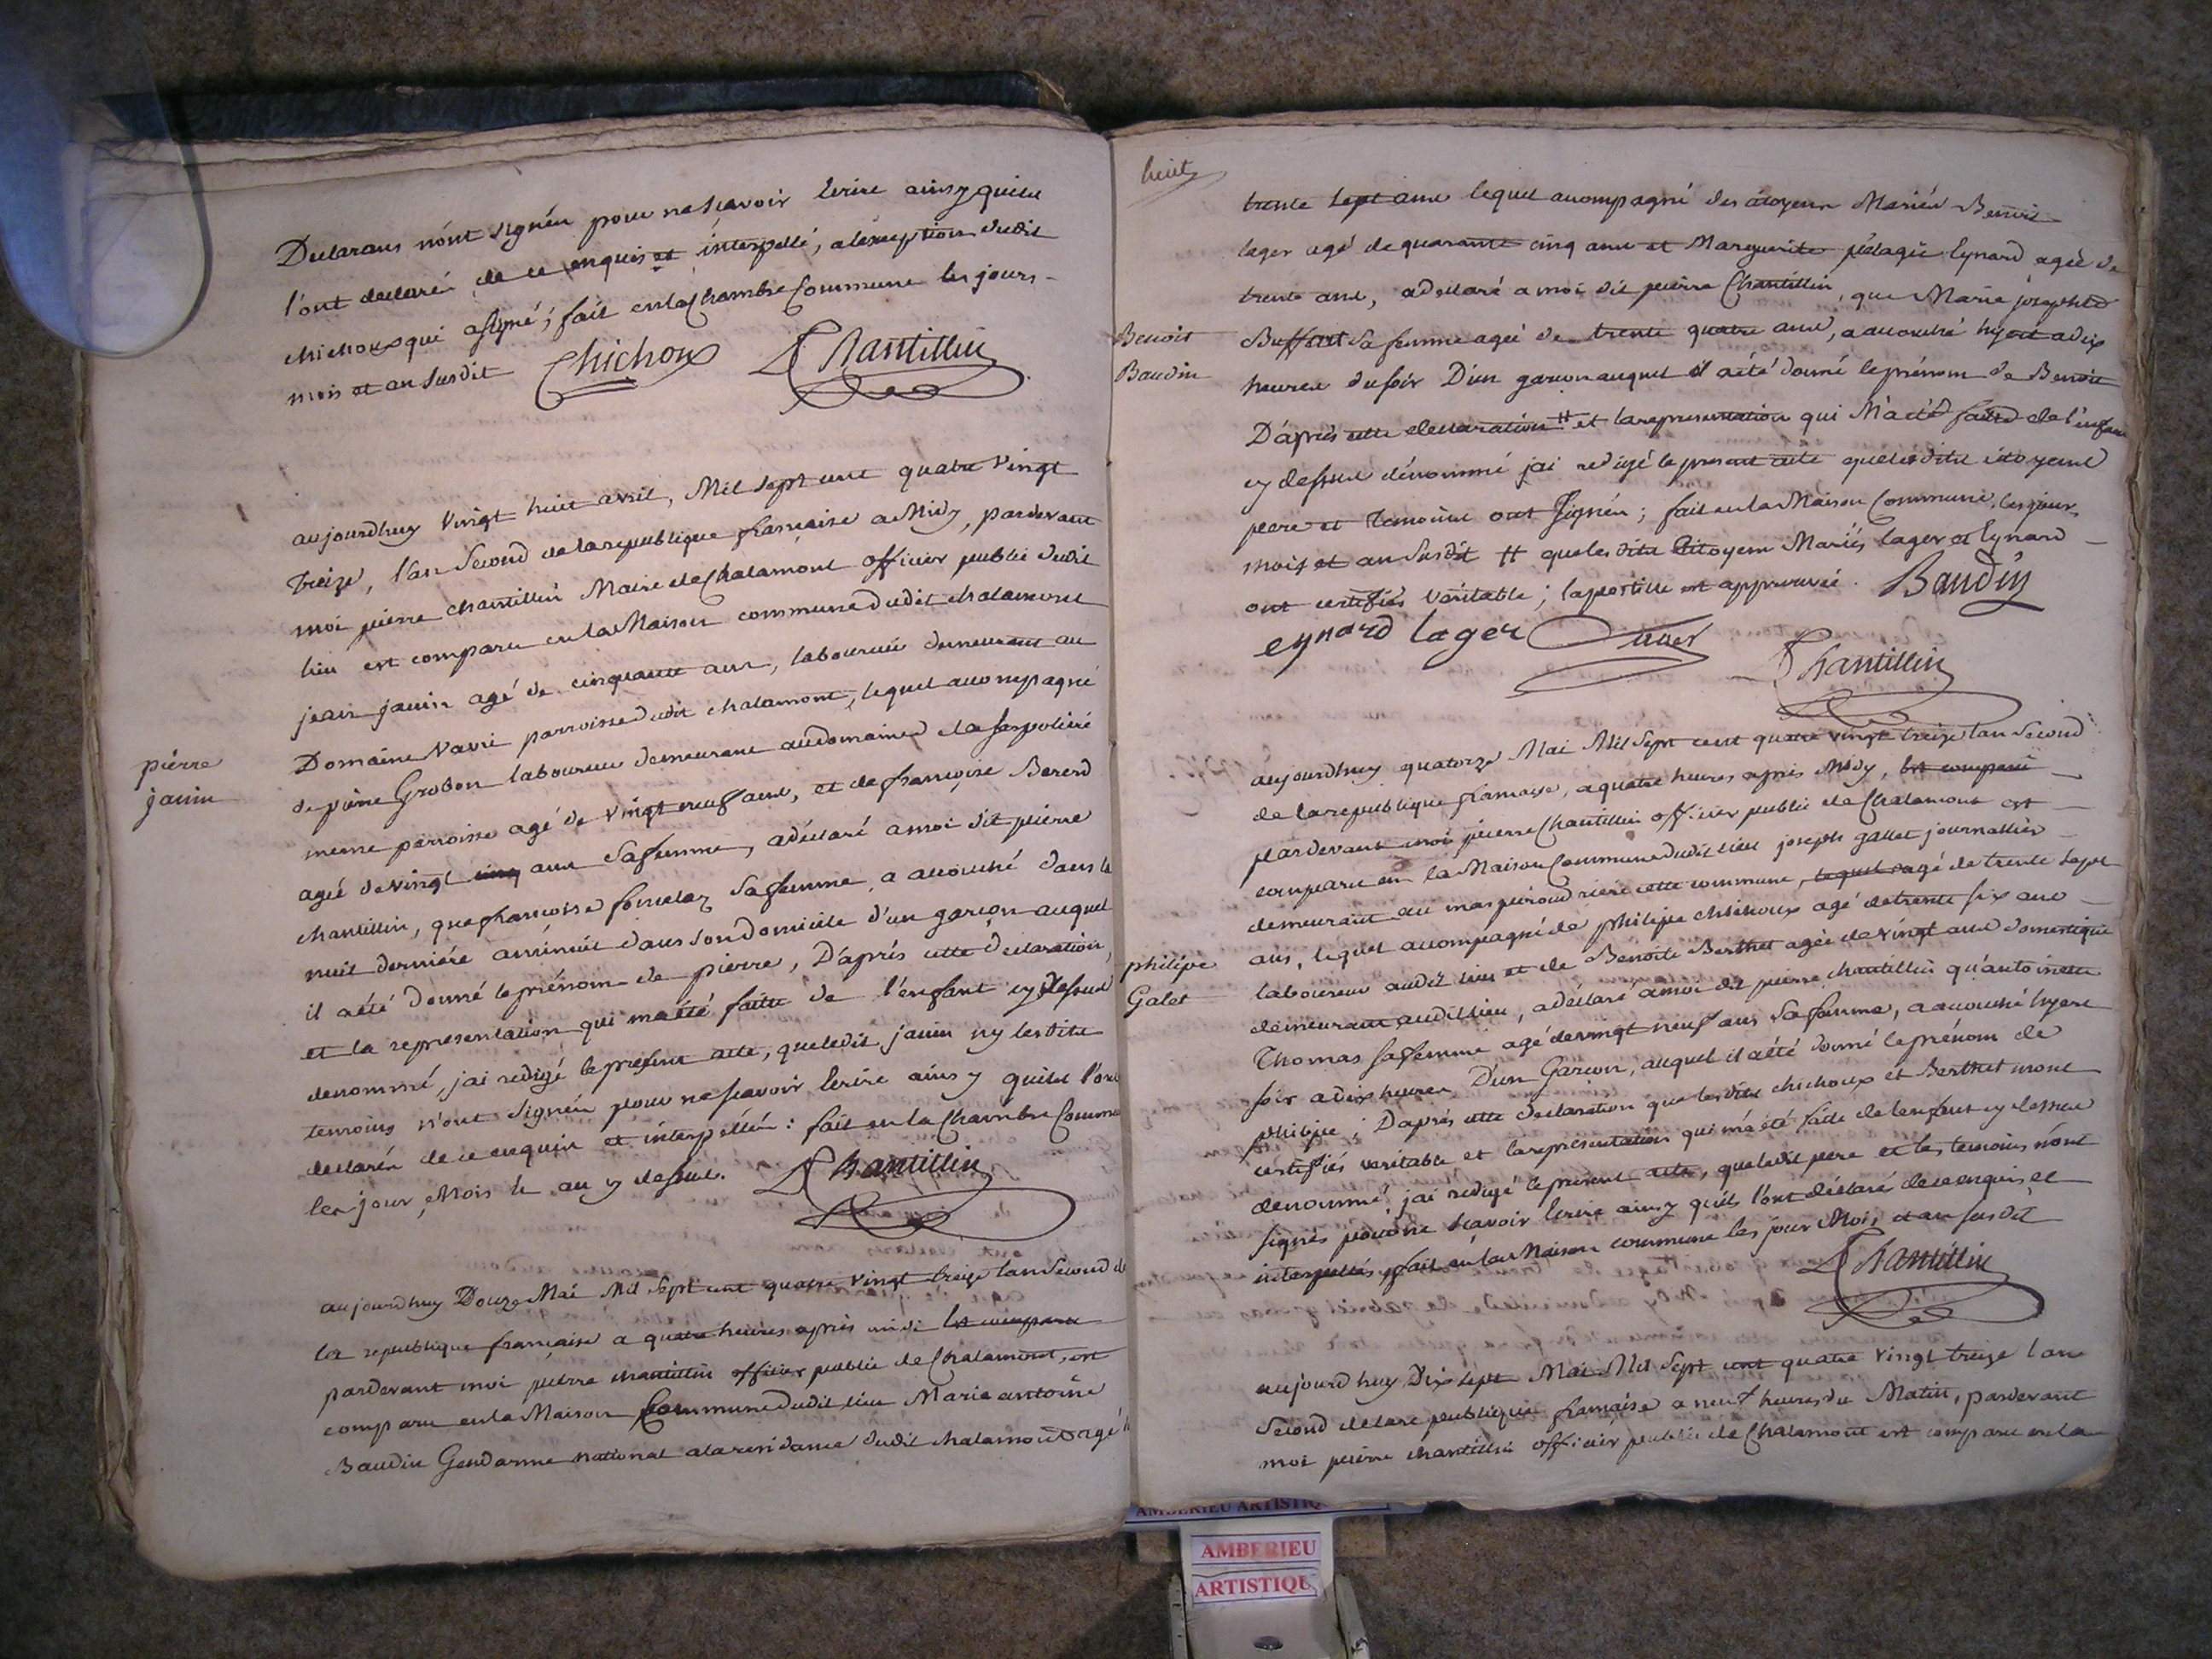 Declarans nónt signén pour ne sçavoir Ecrire ainsy quils
l'ont declaré de ce enquis et interpellé, alexception dudit
chichoux qui asigné; fait en la Chambre Commune les jours
mois et an susdit Chichoux PChantillin
aujourdhuy vingt huit avril, Mil sept cent quatre vingt
Treize, l'an Second de la republique francaise a Midy, pardevant
moi pierre chantillin Maire de Chalamont officier public dudit
lieu est comparu en la Maison commune dudit chalamont
jean janin agé de cinquante ans, laboureur demeurant au
Domaine Navié parroisse dudit chalamont, lequel accompagné
de pierre Grobon laboureur demeurant au domaine de la
meme parroisse agé de vingt neuf ans, et de françoise Bererd
agée de vingt cinq ans Sa femme, a déclaré a moi dit pierre
chantillin, que francoise sa femme a accouché dans la
nuit derniére a minuit dans son domicile d'un garçon auquel
il a été donné le prénom de pierre, D'aprés cette déclaration,
et la representation qui m'a été faite de l'enfant cy dessus
denommé, j'ai redigé le present acte, que ledit janin ny lesdits
temoins n'ont signén pour ne scavoir Ecrire ainsy quils l'ont
declarén de ce enquin et interpéllén: fait en la Chambre Commune
les jour, Mois et an cy dessus. PChantillin
pierre
janin
aujourdhuy Douze Mai Mil Sept cent quatre vingt treize lan Second de
la republique française a quatre heures aprés midi est comparu
pardevant moi pierre chantillin officier public de Chalamont, est
comparu en la Maison Commune dudit lieu Marie antoine
Baudin Gendarme national a la residance dudit chalamont agé de
huit
trente sept ans lequel accompagné des citoyens Mariés Benoit
lager agé de quarante cinq ans et Marguerite pélagie Eynard agée de
trente ans, a déclaré a moi dit pierre Chantillin, que Marie josephte
Buffart Sa femme agée de trente quatre ans, a accouché hyert a dix
heures du soir D'un garcon auquel il a été donné le prénom de Benoit
D'aprés cette declaration # et la representation qui M'a été faite de l'enfant
cy dessus dénommé j'ai redigé le present acte que lesdits citoyens
pere et Temoins ont signén; fait en la Maison Commune, les jour,
mois et an susdit # que lesdits Citoyens Mariés lager et Eynard
ont certifiés véritable; lapostille est approuvée. Baudin
eynard lager
PChantillin
Benoit
Baudin
aujourdhuy quatorze Mai Mil Sept cent quatre vingt treize lan Second
de la republique francaise, a quatre heures aprés Midy, est comparu
pardevant moi pierre Chantillin officier public de Chalamont est
comparu en la Maison Commune dudit lieu joseph gallet journallier
demeurant au mas rière cette commune, lequel agé de trente sept
ans, lequel accompagné de philipe chichoux agé de trente six ans
laboureur audit lieu et de Benoite Berthet agée de vingt ans domestique
demeurant audit lieu, a déclaré a moi dit pierre chantillin qu'antoinette
Thomas sa femme agé de vingt neuf ans Sa femme, a accouché hyere
soir a dix heures D'un Garcon, auquel il a été donné le prénom de
philipe; D'aprés cette declaration que lesdits chichoux et Berthet m'ont
certifiés veritable et la representation qui m'a été faite de lenfant cy dessus
denommé, j'ai redigé le present acte, que ledit pere et les temoins n'ont
signés pour ne scavoir Ecrire ainsy quils l'ont déclaré de ce enquis et
interpellés, fait en la Maison commune les jour Mois, et an susdit
PChantillin
philipe
Galet
aujourdhuy Dix sept Mai Mil Sept cent quatre vingt treize lan
Second de la republique francaise a neuf heures du Matin, pardevant
moi pierre chantillin officier public de Chalamont est comparu en la
AMBERIEU ARTISTIQ
AMBERIEU
ARTISTIQU